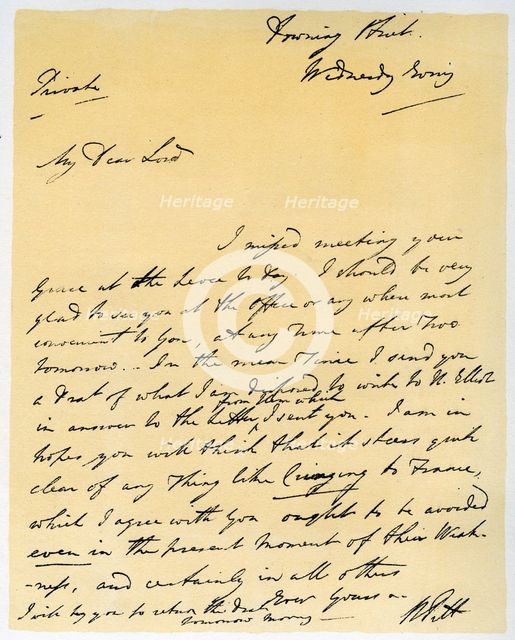 Downing Street.
Wednesday Evening
Private
My Dear Lord
I missed meeting your
Grace at the Levee to day. I should be very
glad to see you at the Office or any where most
convenient to You, at any Time after Two
tomorrow.. In the mean Time I send you
a Draft of what I am disposed to write to H. Elliot
in answer to the Letter from him which I sent you. I am in
hopes you will think that it steers quite
clear of any Thing like Cringing to France,
which I agree with You ought to be avoided
even in the present Moment of their Weak-
-ness, and certainly in all others
Ever Yours
W Pitt
I will beg you to return the Draft
tomorrow Morng
Heritage
Heritage
Heritage
Heritage
Heritage
Heritage